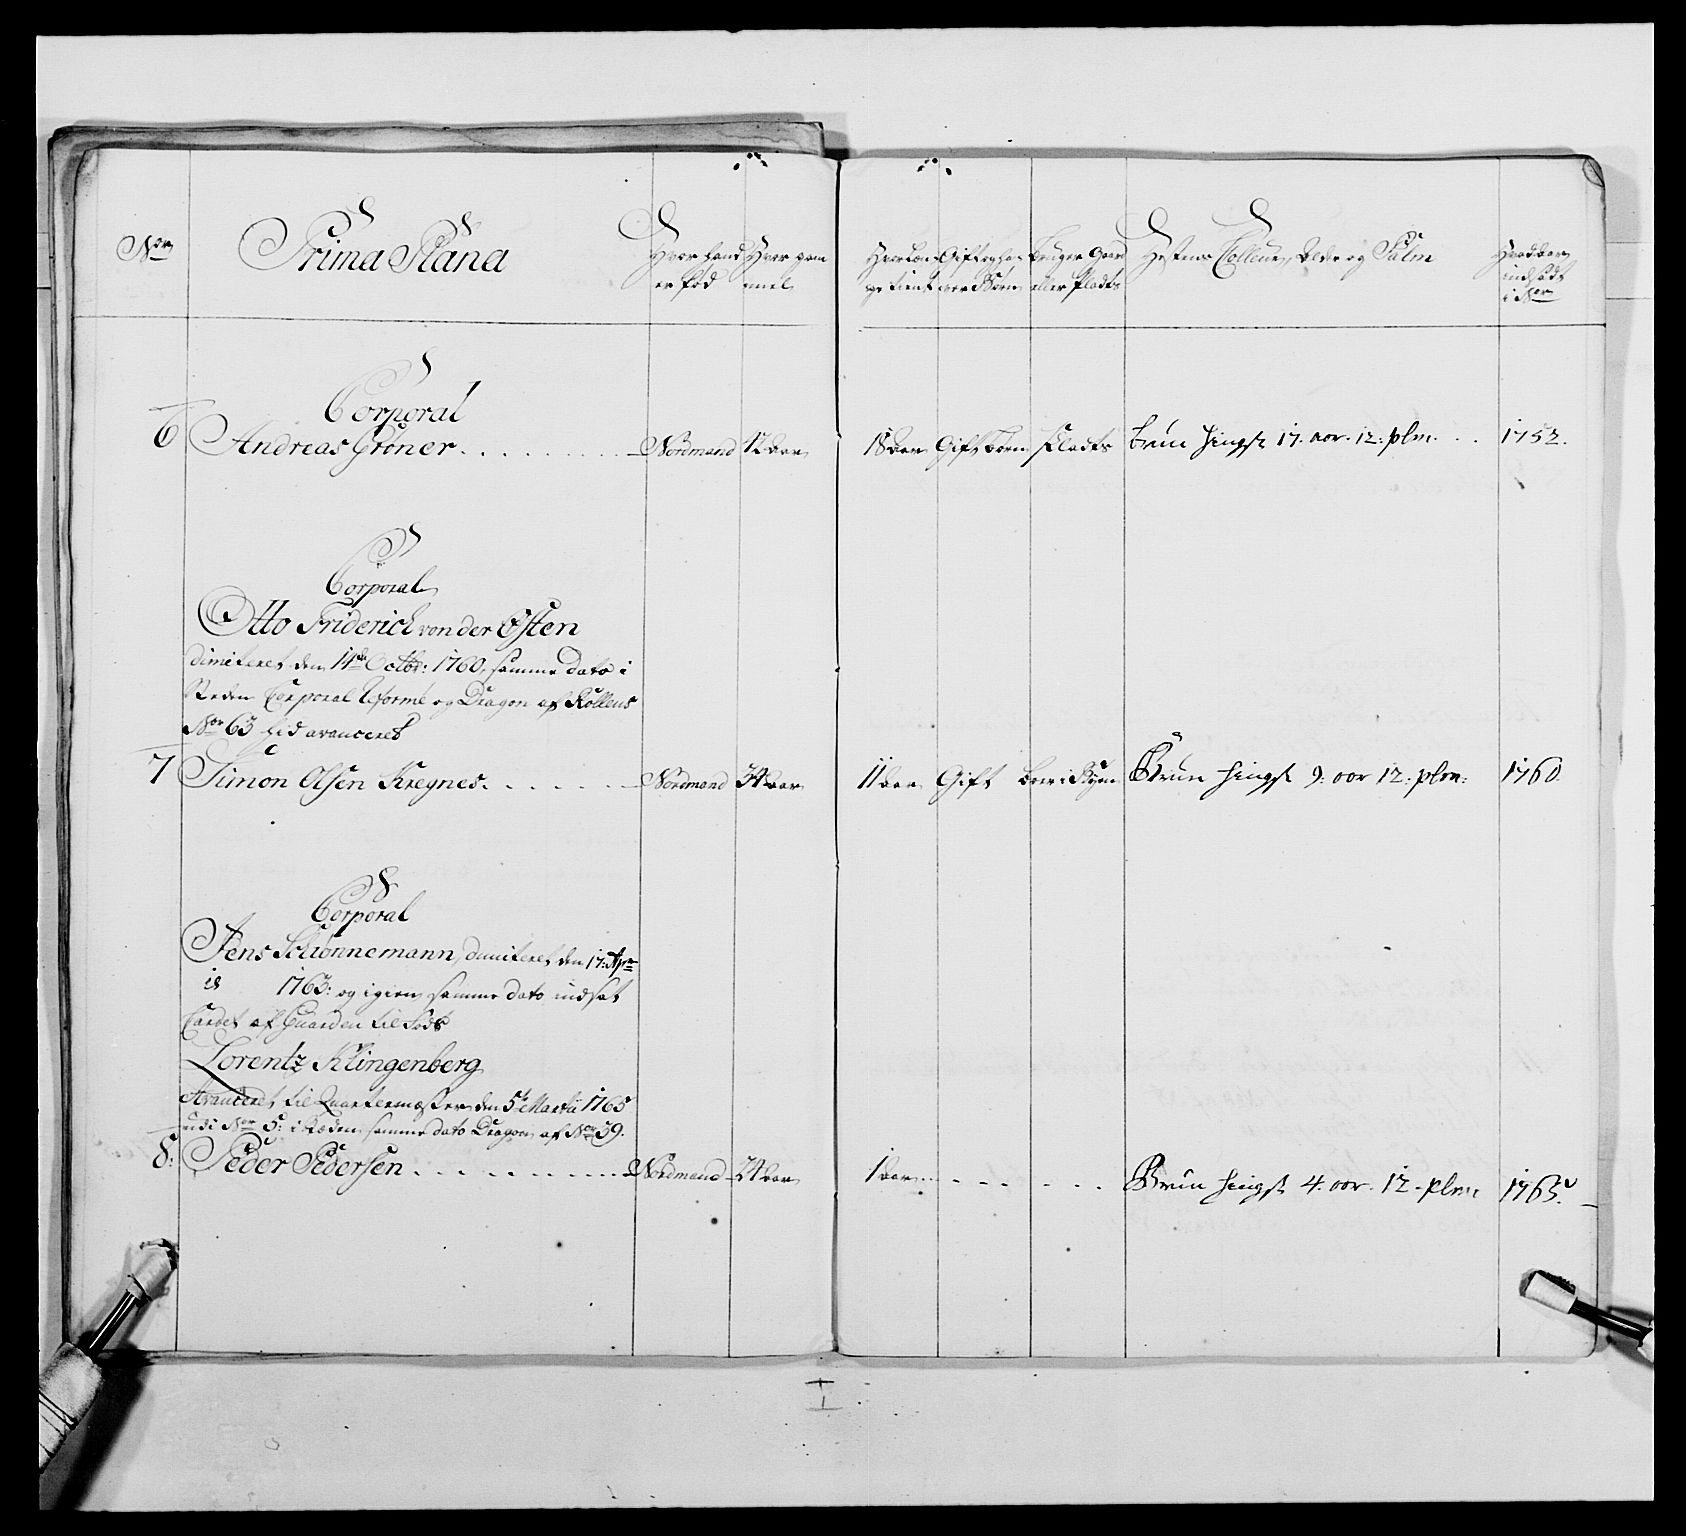 No Prima Plana Hvor hand er fød Hvor gammel Hvor længe tient Gift og har wer Børn Bruger Gaard eller Plads Hestens Colleur, Alder og Palm Hvad Aar indsadt i No
Corporal
6 Andreas Grøner Nordmand 12 aar 18 aar Gift Børn Plads brun hingst 17. aar. 12: plm. 1752.
Corporal
Otto Friderich von der Osten
dimiteret den 14de Octbr: 1760, samme dato i
Steden Corporal Reformé og Dragon af Rullens
No 63 hid avanceret
7 Simon Olsen Kregnes Nordmand 34 aar 11 aar Gift boer i Byen Brun hingst 9: aar 12: plm: 1760.
Corporal
Jens Schønnemann, dimiteret den 17: Apr
il 1763: og igien samme dato indsat
Cadet af Guarden til Fods
Lorentz Klingenberg
Avanceret til Quartermæster den 5te Martii 1765
udi No 5: i Steden samme dato Dragon af No 39.
8: Peder Pedersen Nordmand 24 aar 1 aar Brun hingst 4. aar. 12. plm: 1765.